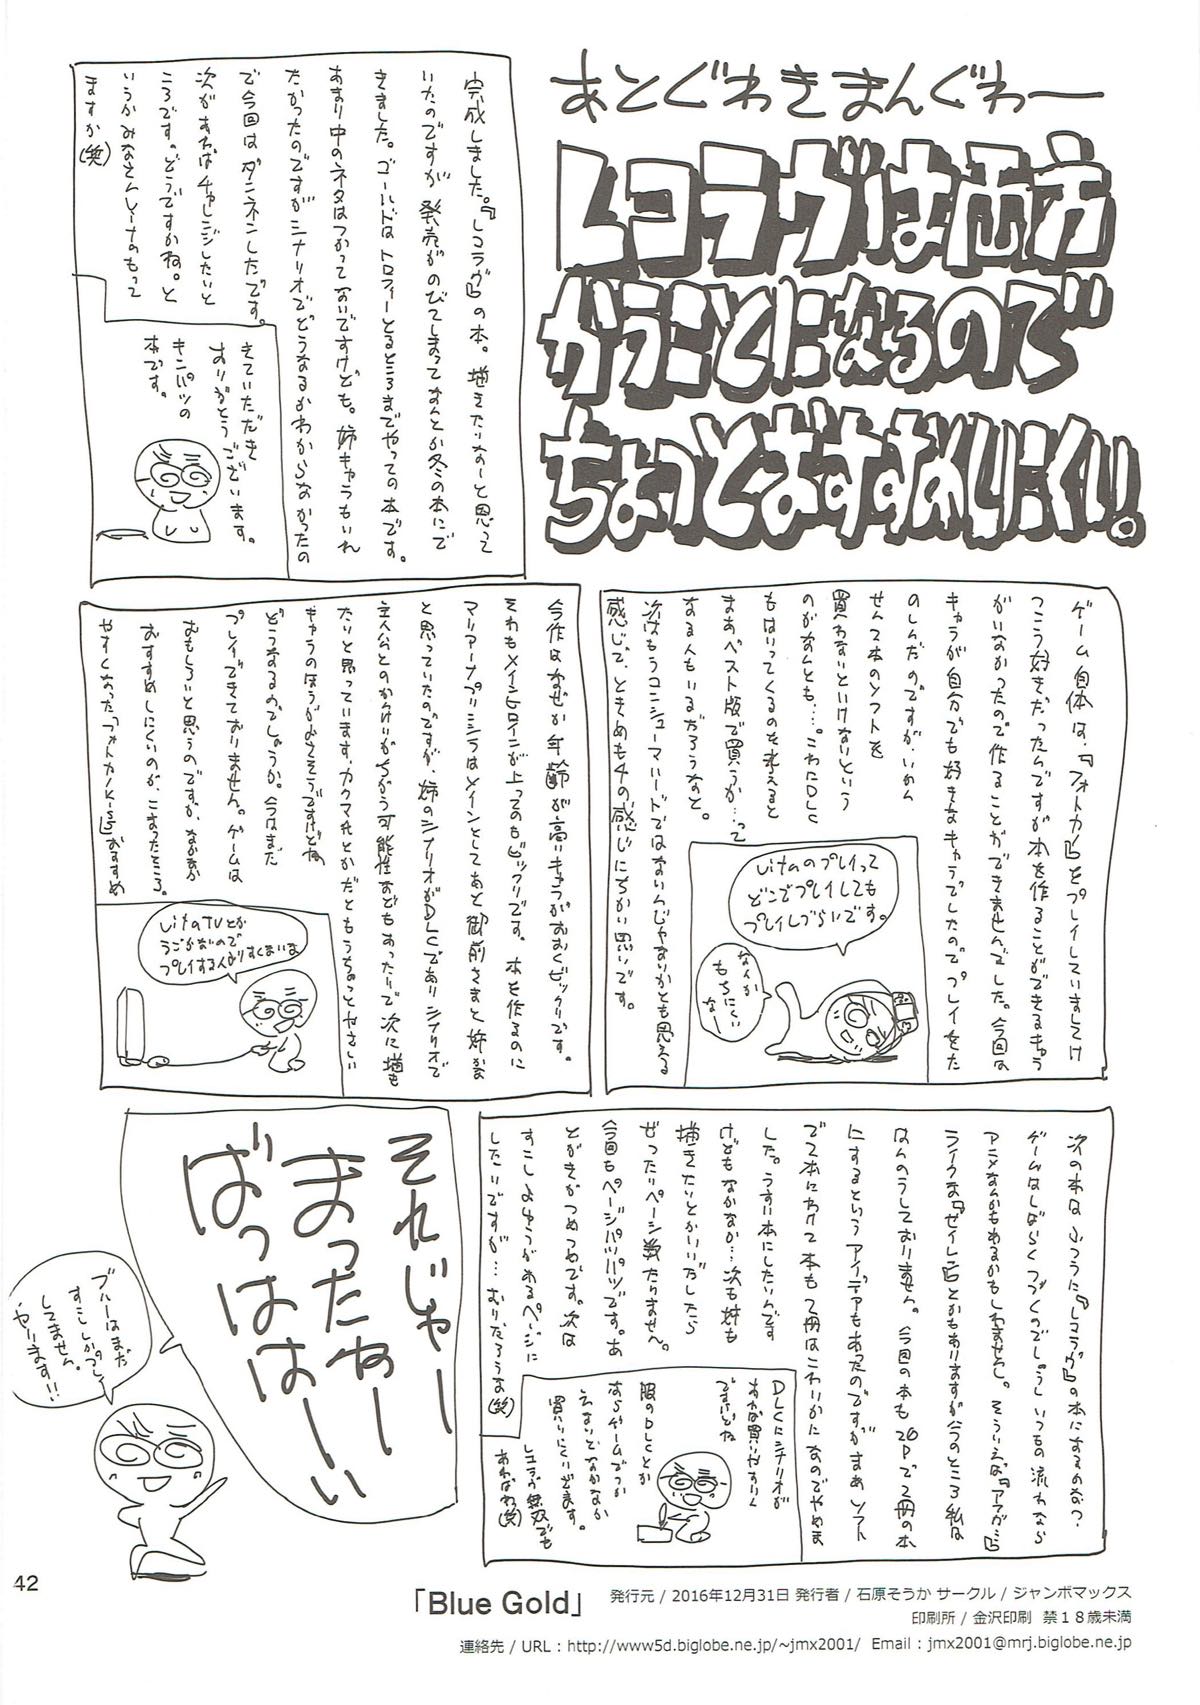 あとぐわきまんぐわー
レコラヴは両方
かうことになるので
ちょっとおすすめしにくい!。
完成しました。『レコラヴ』の本。描きたいなーと思って
いたのですが発売がのびてしまってなんとか冬の本にで
きました。ゴールドはトロフィーとるところまでやっての本です。
あまり中のネタはつかってないですけども。姉キャラもいれ
たかったのですがシナリオでどうなるかわからなかったの
で今回はダンネンしたです。
次があればチャレンジしたいと
ころです。どうですかね。と
いうかみなさんレコラヴのもって
ますか(笑)
きていただき
ありがとうございます。
キンパツの
本です。
ゲーム自体は、『フォトカノ』をプレイしていましてけ
っこう好きだったんですが本を作ることができるキャラ
がいなかったので作ることができませんでした。今回は
キャラが自分でも好きなキャラでしたのでプレイをた
のしんだのですが、いかん
せん2本のソフトを
買わないといけないという
のがなんとも…。これにDLC
もはいってくるのを考えると
まあベスト版で買うか…って
なる人もいるだろうなと。
次はもうコンシューマハードではないんじゃないかとも思える
感じで、ときめも4の感じにちかい思いです。
vitaのプレイって
どこでプレイしても
プレイしづらいです。
なんか
もちにくい
なー
今作はなぜか年齢が高いキャラがおおくビックリです。
それもメインヒロインが上ってのもビックリです。本を作るのに
マリアーナプリシラはメインとしてあと御前さまと姉かな
と思っていたのですが、姉のシナリオがDLCでありシナリオで
主人公とのかんけいがちがう可能性などもあったりで次に描も
たりと思っています。カクマ先とかだともうちょっとやさしい
キャラのほうがよさそうですけどね
どうなるのでしょうか。今はまだ
プレイできておりません。ゲームは
おもしろいと思うのですが、なかなか
おすすめしにくいのが、こまったところ。
やすくなった『フォトカノKiss』おすすめ
vitaTVとか
うごかないので
プレイする人がすくないよ
次の本はふつうに『レコラヴ』の本になるのかな?
ゲームはしばらくつづくのでしょうしいつもの流れなら
アニメなんかもあるかもしれません。そういえば『アマガミ』
ライクな『セイレン』とかもありますが今のところ私は
はんのうしておりません。今回の本も20Pで2冊の本
にするというアイデアもあったのですがまあソフト
で2本にわけて本も2冊はこわいかになのでやめま
した。うすい本にしたいんです
けどもなかなか…次も姉も
描きたいとかいいだしたら
ぜったいページ数たりません。
今回もページパツパツです。あ
とがきがつめつめです。次は
すこしよゆうがあるページに
したいですが…むりだろうな(笑)
DLCにシナリオが
あれば買いやすい
ですけどね
服のDLCとか
ならゲームでつか
えないとなかなか
買いにくいですよ。
レコラヴ無双でも
あればねぇ(笑)
それじゃー
まったねー
ばっはは〜い
ブルーはまだ
すこししかプレイ
してません。
やります!!
42
「Blue Gold」
発行元 / 2016年12月31日 発行者 / 石原そうか サークル / ジャンボマックス
印刷所 / 金沢印刷 禁18歳未満
連絡先 / URL : http://www5d.biglobe.ne.jp/~jmx2001/ Email : jmx2001@mrj.biglobe.ne.jp